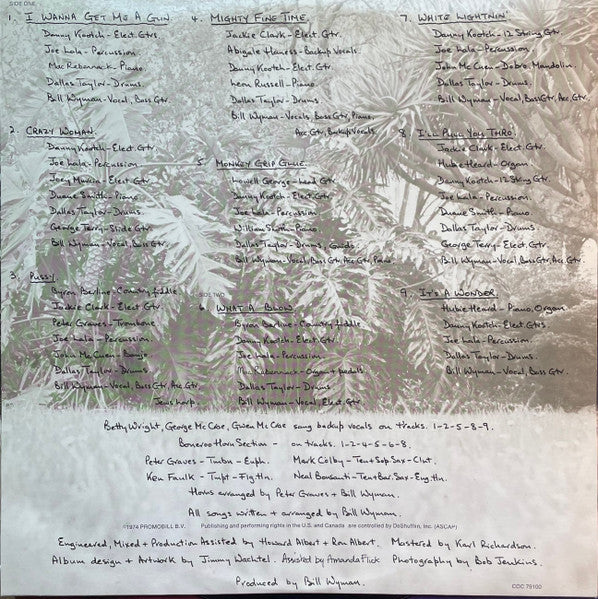 SIDE ONE
1. I WANNA GET ME A GUN.
Danny Kootch - Elect. Gtrs.
Joe Lala - Percussion.
Mac Rebannack - Piano.
Dallas Taylor - Drums.
Bill Wyman - Vocal, Bass Gtr.
2. CRAZY WOMAN.
Danny Kootch - Elect. Gtr.
Joe Lala - Percussion
Joey Murcia - Elect. Gtr.
Duane Smith - Piano
Dallas Taylor - Drums.
George Terry - Slide Gtr.
Bill Wyman - Vocal, Bass Gtr.
3. PUSSY.
Byron Berline - Country fiddle
Jackie Clark - Elect Gtr.
Peter Graves - Trombone
Joe Lala - Percussion.
John McCuen - Banjo.
Dallas Taylor - Drums.
Bill Wyman - Vocal, Bass Gtr, Acc Gtr.
Jews harp.
4. MIGHTY FINE TIME.
Jackie Clark - Elect. Gtr.
Abigale Haness - Backup Vocals.
Danny Kootch - Elect. Gtr.
Leon Russell - Piano.
Dallas Taylor - Drums.
Bill Wyman - Vocals, Bass Gtr, Piano.
Acc Gtr, Backup Vocals.
5. MONKEY GRIP GLUE.
Lowell George - Lead Gtr.
Danny Kootch - Elect. Gtr.
Joe Lala - Percussion
William Smith - Piano.
Dallas Taylor - Drums, Gourds
Bill Wyman - Vocal, Bass Gtr, Acc Gtr, Piano
SIDE TWO
6. WHAT A BLOW.
Byron Berline - Country fiddle
Danny Kootch - Elect. Gtr.
Joe Lala - Percussion.
Mac Rabannack - Organ + pedals.
Dallas Taylor - Drums
Bill Wyman - Vocal, Elect. Gtr.
7. WHITE LIGHTNIN'
Danny Kootch - 12 String Gtr.
Joe Lala - Percussion.
John McCuen - Dobro, Mandolin.
Dallas Taylor - Drums.
Bill Wyman - Vocal, Bass Gtr, Acc, Gtr.
8. I'LL PULL YOU THRO.
Jackie Clark - Elect. Gtr.
Hubie Heard - Organ
Danny Kootch - 12 String Gtr.
Joe Lala - Percussion.
Duane Smith - Piano.
Dallas Taylor - Drums.
George Terry - Elect. Gtr.
Bill Wyman - Vocal, Bass Gtr, Acc. Gtr.
9. IT'S A WONDER.
Hubie Heard - Piano, Organ
Danny Kootch - Elect. Gtrs
Joe Lala - Percussion.
Dallas Taylor - Drums.
Bill Wyman - Vocal, Bass Gtr.
Betty Wright, George McCrae, Gwen McCrae sang backup vocals on tracks. 1-2-5-8-9.
Boneroo Horn Section - on tracks. 1-2-4-5-6-8.
Peter Graves - Tmbn - Euph. Mark Colby - Ten + Sop. Sax - Clnt.
Ken Faulk - Tmpt - Flg. Hn. Neal Bonsanti - Ten + Bar. Sax - Eng. Hn.
Horns arranged by Peter Graves + Bill Wyman.
All songs written + arranged by Bill Wyman.
©1974 PROMOBILL B.V. Publishing and performing rights in the U.S. and Canada are controlled by DeShufflin, Inc. (ASCAP)
Engineered, Mixed + Production Assisted by Howard Albert + Ron Albert. Mastered by Karl Richardson.
Album design + Artwork by Jimmy Wachtel. Assisted by Amanda Flick Photography by Bob Jenkins.
Produced by Bill Wyman.
COC 79100